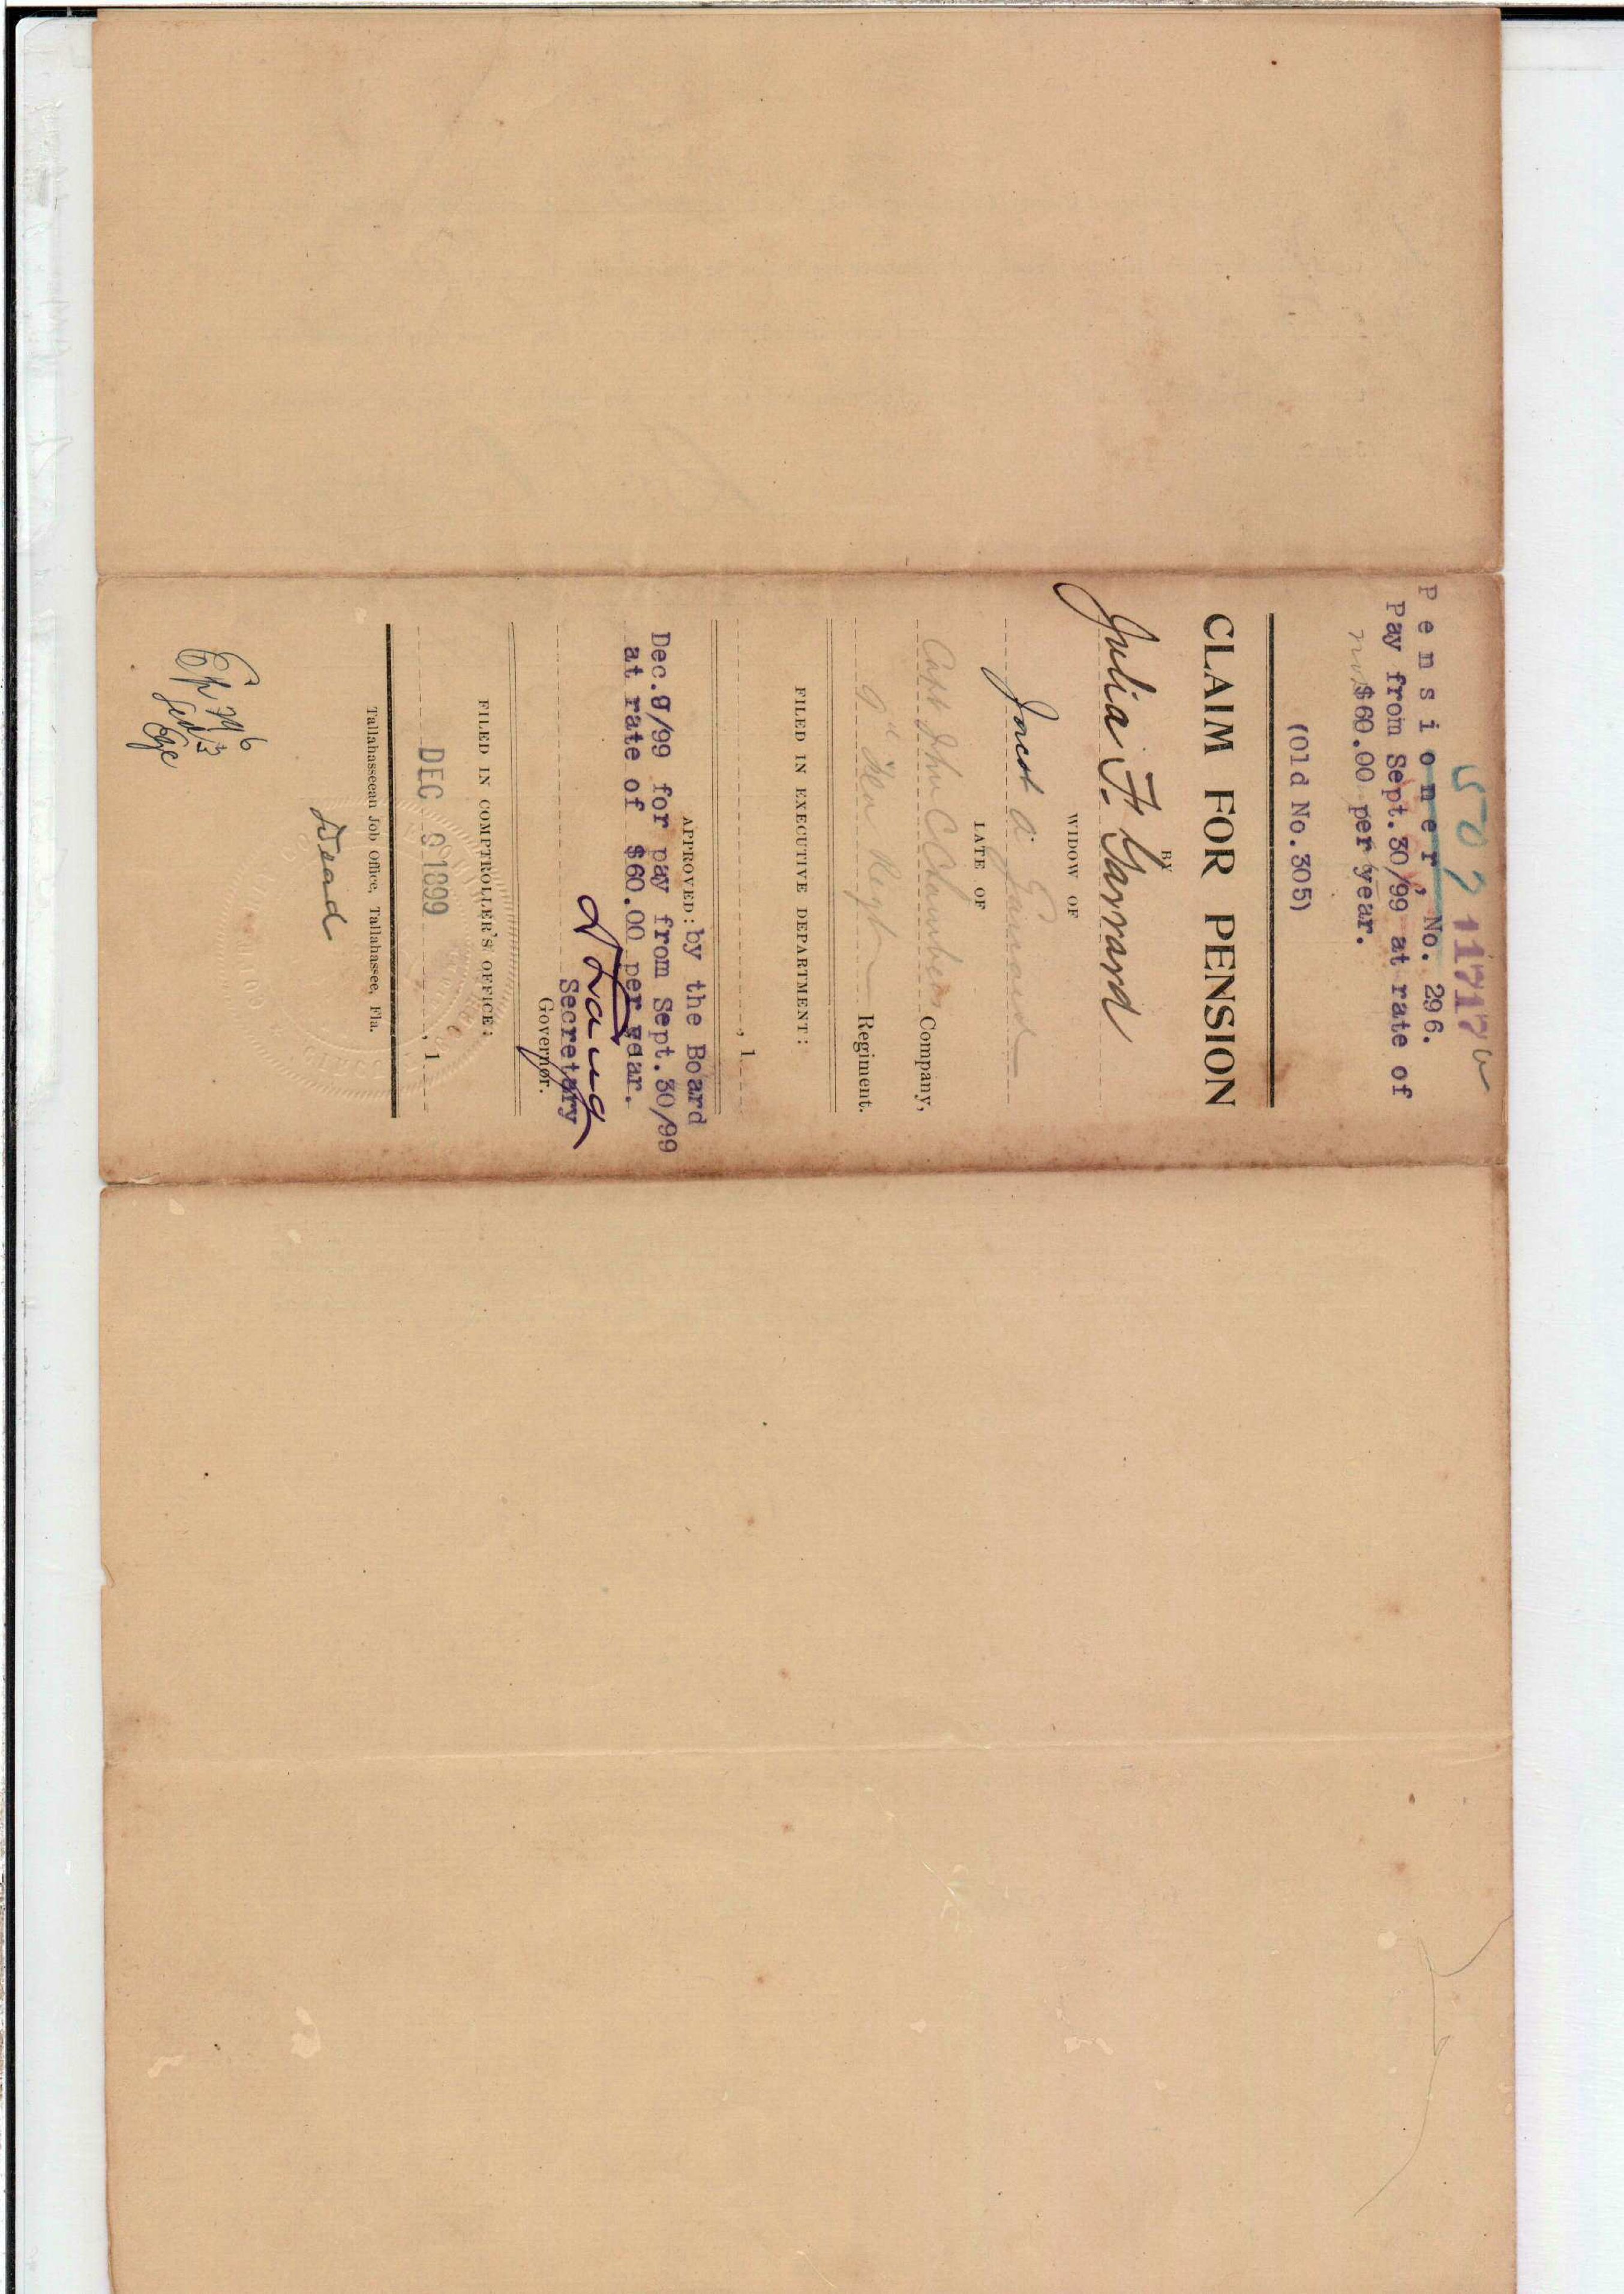 507 11717
Pensioner, No. 296.
Pay from Sept.30/99 at rate of
$60.00 per year.
(Old No.305)
CLAIM FOR PENSION
BY
Julia F. Garrard
WIDOW OF
a Garrard
LATE OF
Capt John C Chambers Company,
9th Flor Regt Regiment.
FILED IN EXECUTIVE DEPARTMENT:
, 1
APPROVED: by the Board
Dec.9/99 for pay from Sept.30/99
at rate of $60.00 per year.
Secretary
Governor.
FILED IN COMPTROLLER'S OFFICE:
DEC 9 1899 , 1
Tallahasseean Job Office, Tallahassee, Fla.
Dead